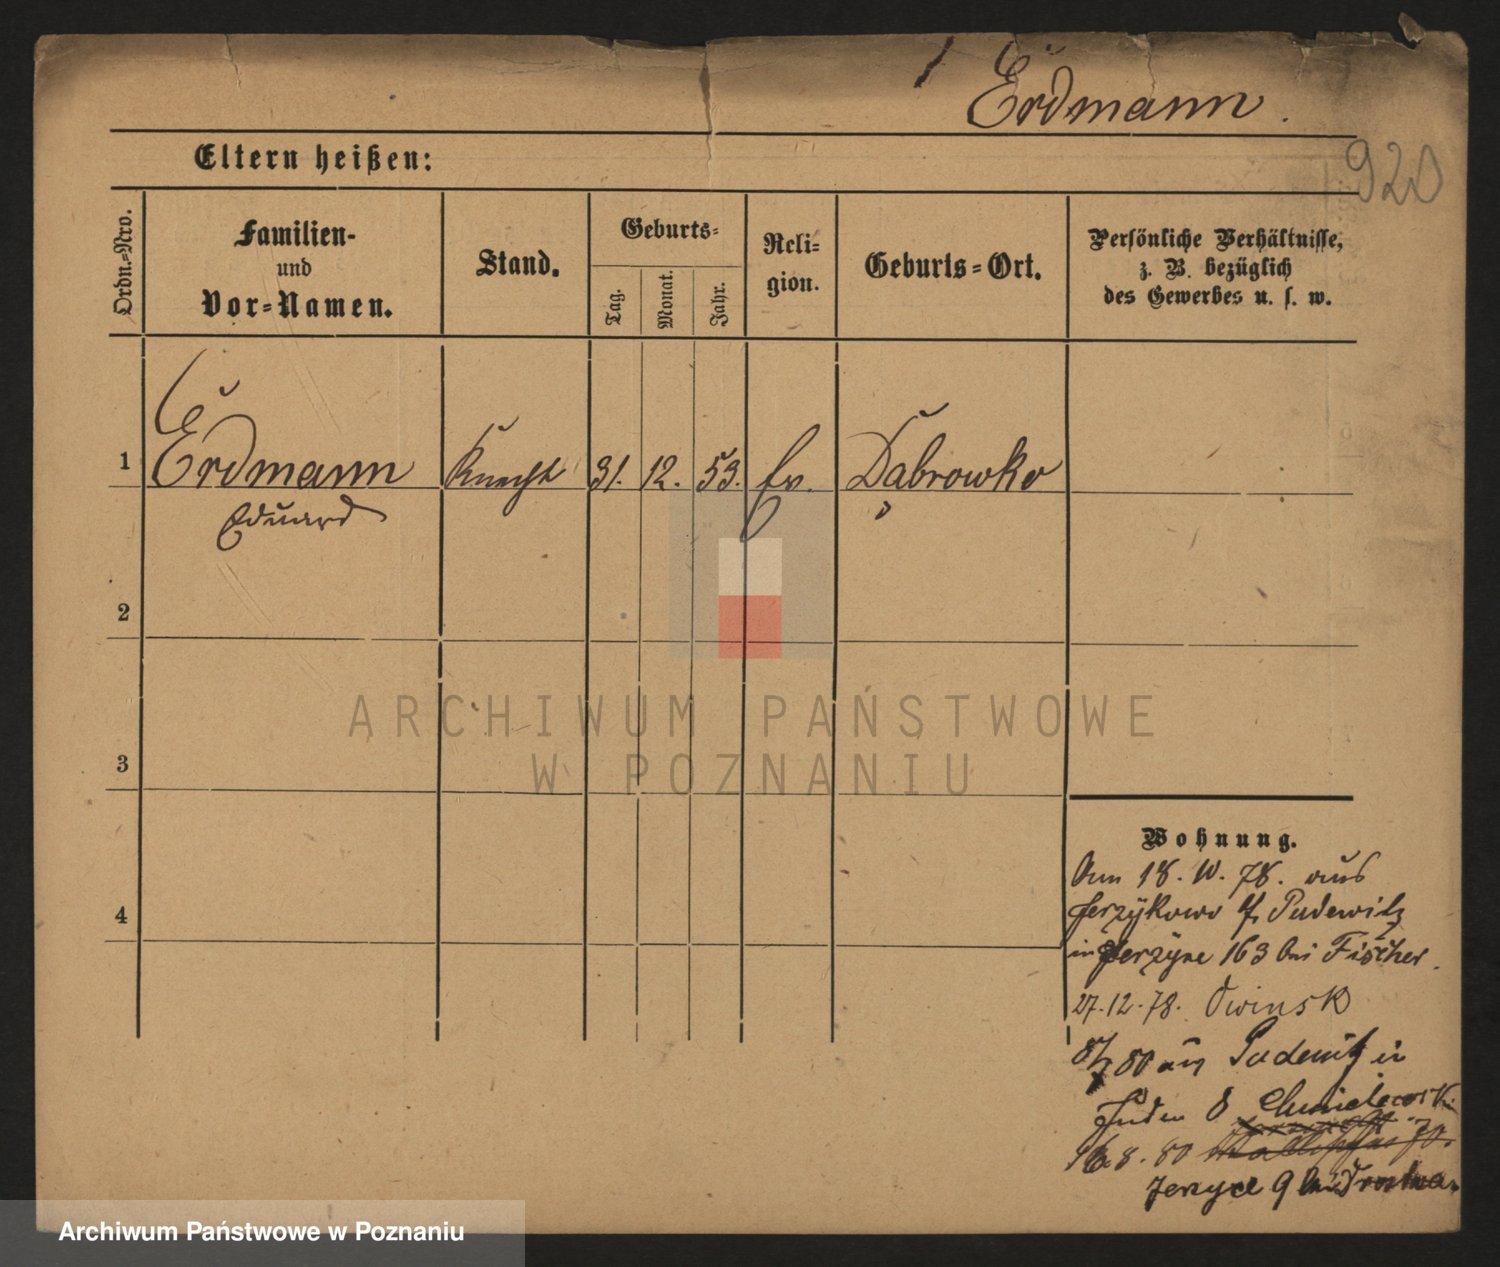 1 Erdmann.
920
Eltern heißen:
Ordn.-Nro.
Familien-
und
Vor-Namen.
Stand.
Geburts-
Tag.
Monat.
Jahr.
Reli-
gion.
Geburts-Ort.
Persönliche Verhältnisse,
z. B. bezüglich
des Gewerbes u. s. w.
1 Erdmann Knecht 31. 12. 53. Ev. Dąbrowko
Eduard
2
3
4
Wohnung.
Am 18. 10. 78. aus
Jerzÿkowo Pudewitz
in Jerzÿce 163 bei Fischer.
27.12.78. Owinsk
80 aus Pudewitz in
Juden 8 Chmielewski
16.8.80
Jerzyce 9
ARCHIWUM PAŃSTWOWE
W POZNANIU
Archiwum Państwowe w Poznaniu